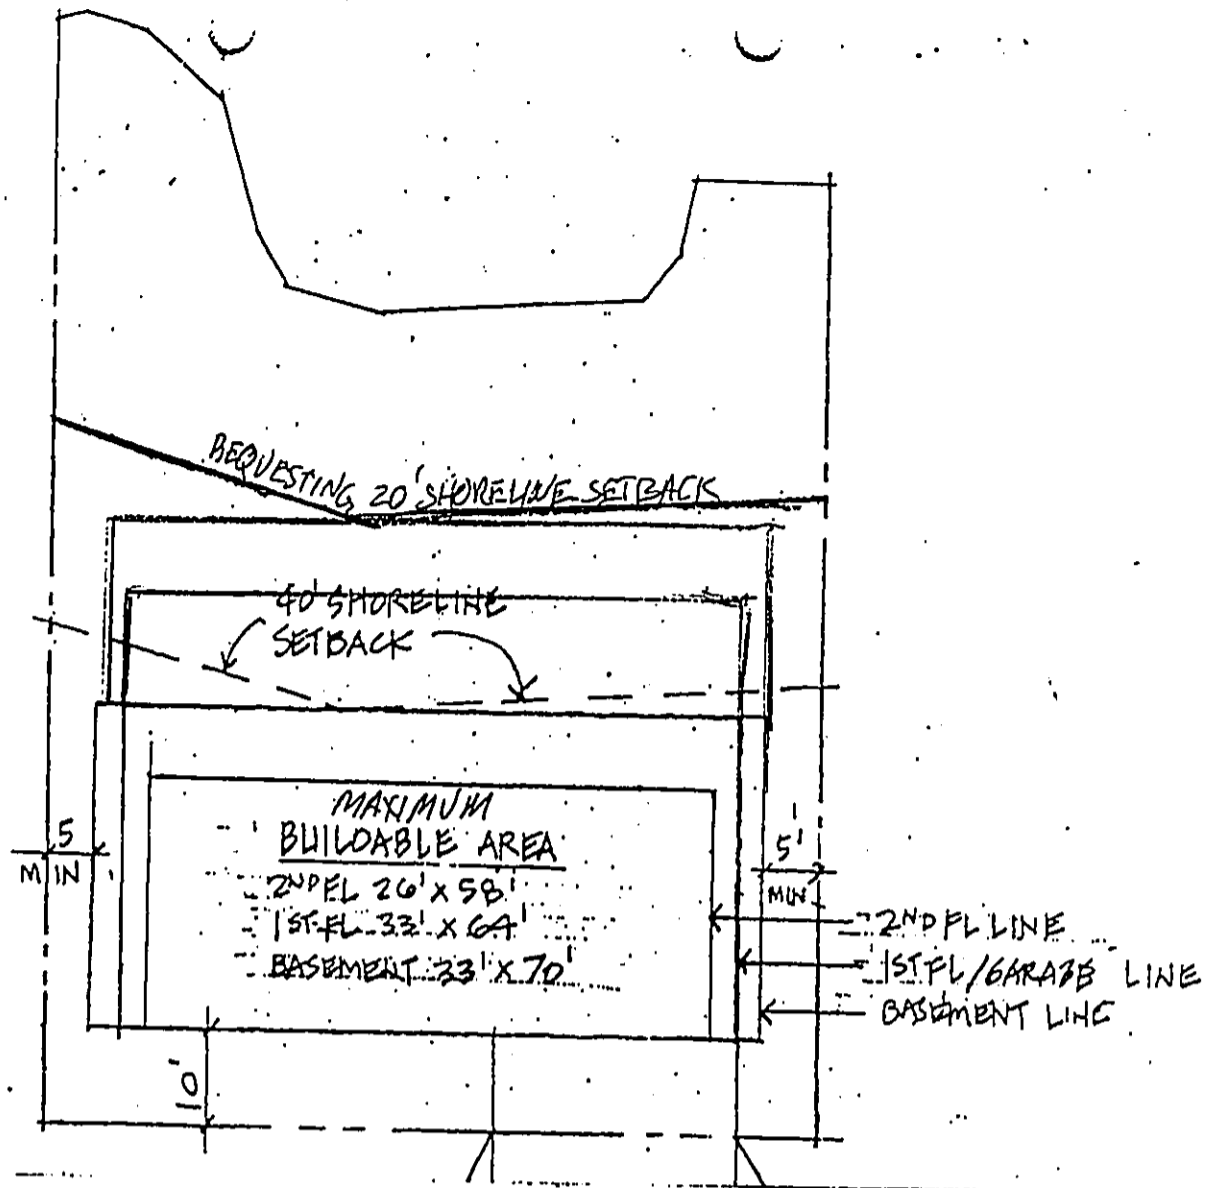 REQUESTING 20' SHORELINE SETBACK
40' SHORELINE
SETBACK
MAXIMUM
BUILDABLE AREA
2ND FL 26' X 58'
1ST FL 33' X 64'
BASEMENT 33' X 70'
5
MIN
5'
MIN
2ND FL LINE
1ST FL/GARAGE LINE
BASEMENT LINE
10'